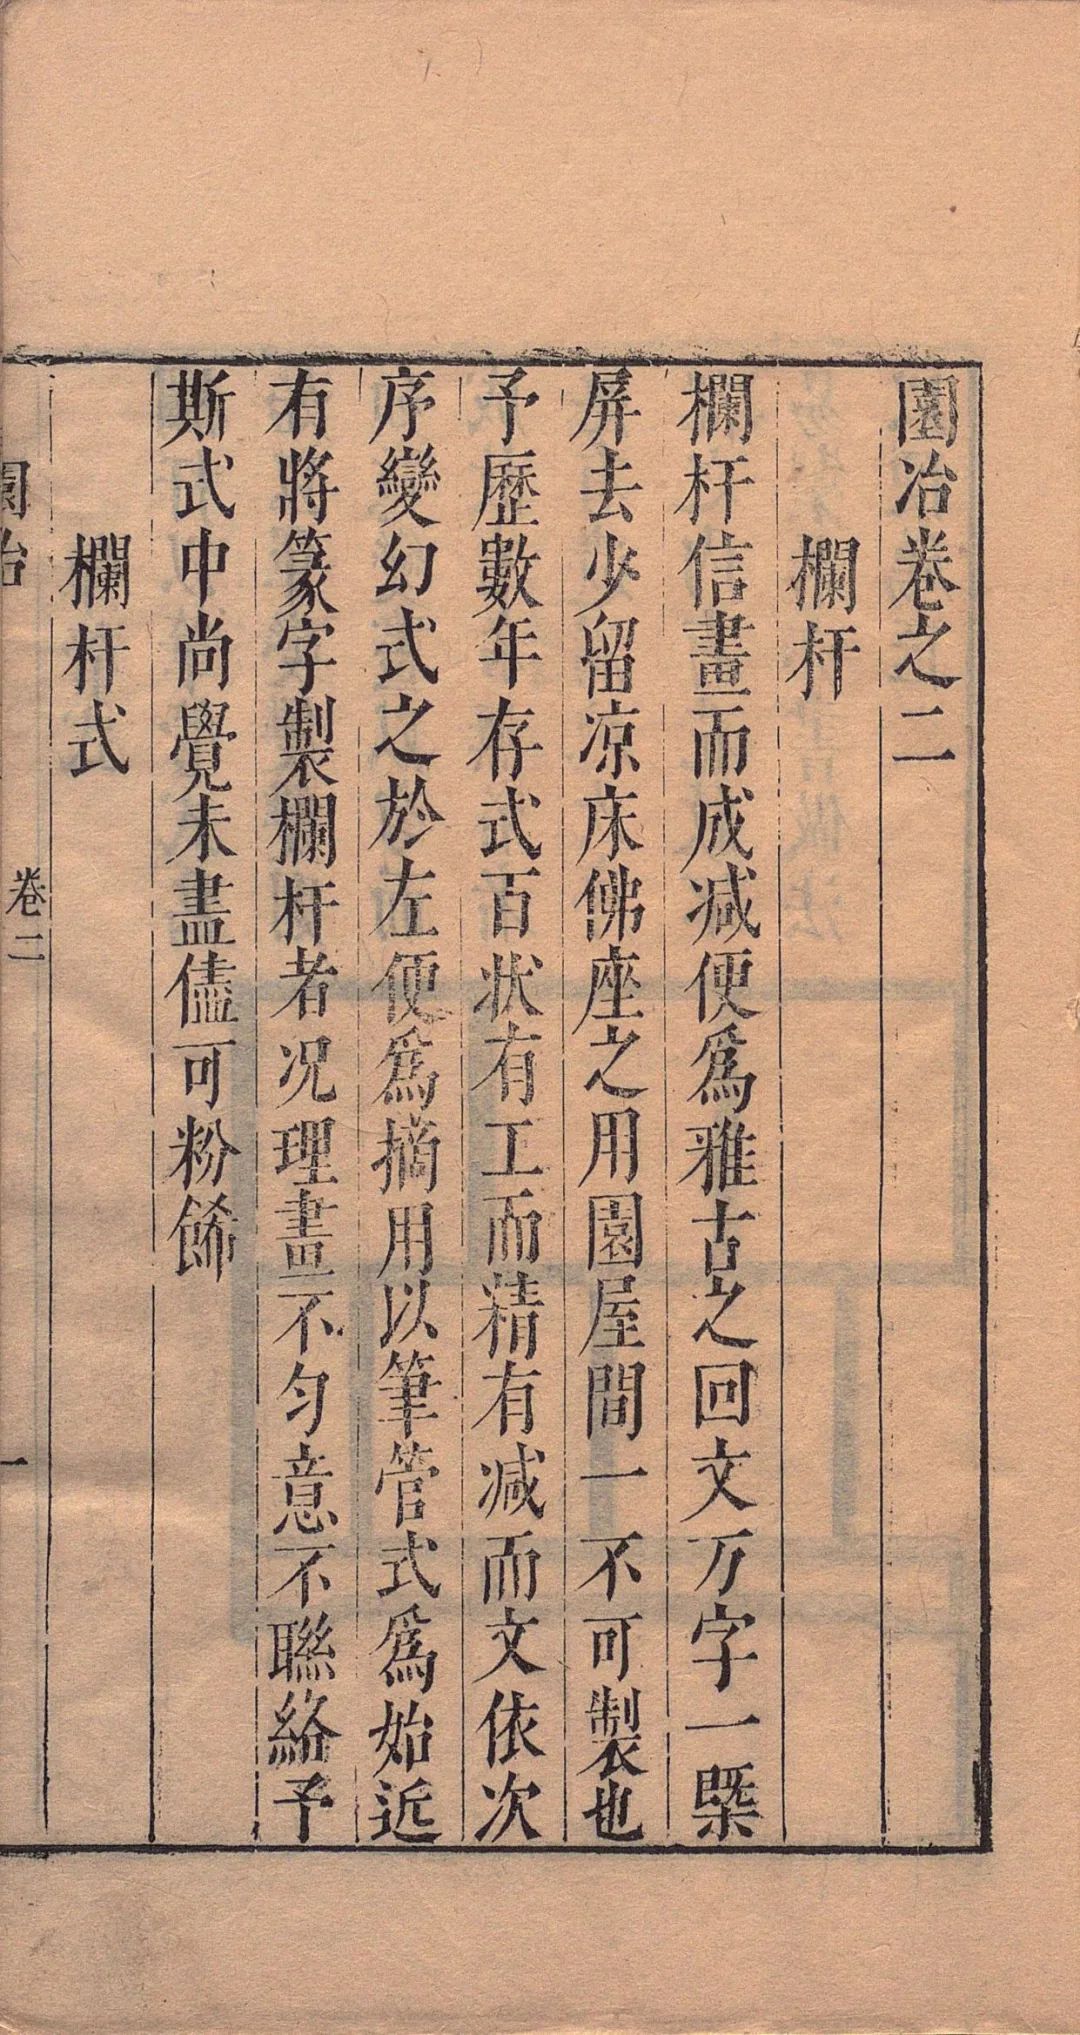 園冶卷之二
欄杆
欄杆信畫而成减便爲雅古之回文万字一槩
屏去少留凉床佛座之用園屋間一不可製也
予歷數年存式百状有工而精有减而文依次
序變幻式之於左便爲摘用以筆管式爲始近
有將篆字製欄杆者况理畫不匀意不聯絡予
斯式中尚覺未盡儘可粉餙
欄杆式
園冶
卷二
一